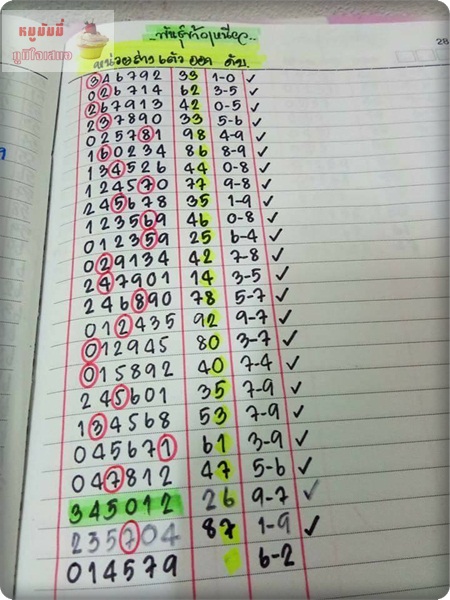 หมูมัมมี่
มูมีใจเสมอ
..พันธุ์ข้าวเหนียว..
28
หน่วยล่าง 6ตัว ออก ดับ.
346792 39 1-0 ✓
026714 62 3-5 ✓
267913 42 0-5 ✓
237890 33 5-6 ✓
025781 98 4-9 ✓
160234 86 8-9 ✓
134526 44 0-8 ✓
124570 77 9-8 ✓
245678 35 1-9 ✓
123569 46 0-8 ✓
012359 25 6-4 ✓
029134 42 7-8 ✓
247901 14 3-5 ✓
246890 78 5-7 ✓
012435 92 9-7 ✓
012945 80 3-7 ✓
015892 40 7-4 ✓
245601 35 7-9 ✓
134568 53 7-9 ✓
045671 61 3-9 ✓
047812 47 5-6 ✓
345012 26 9-7 ✓
235704 87 1-9 ✓
014579 6-2